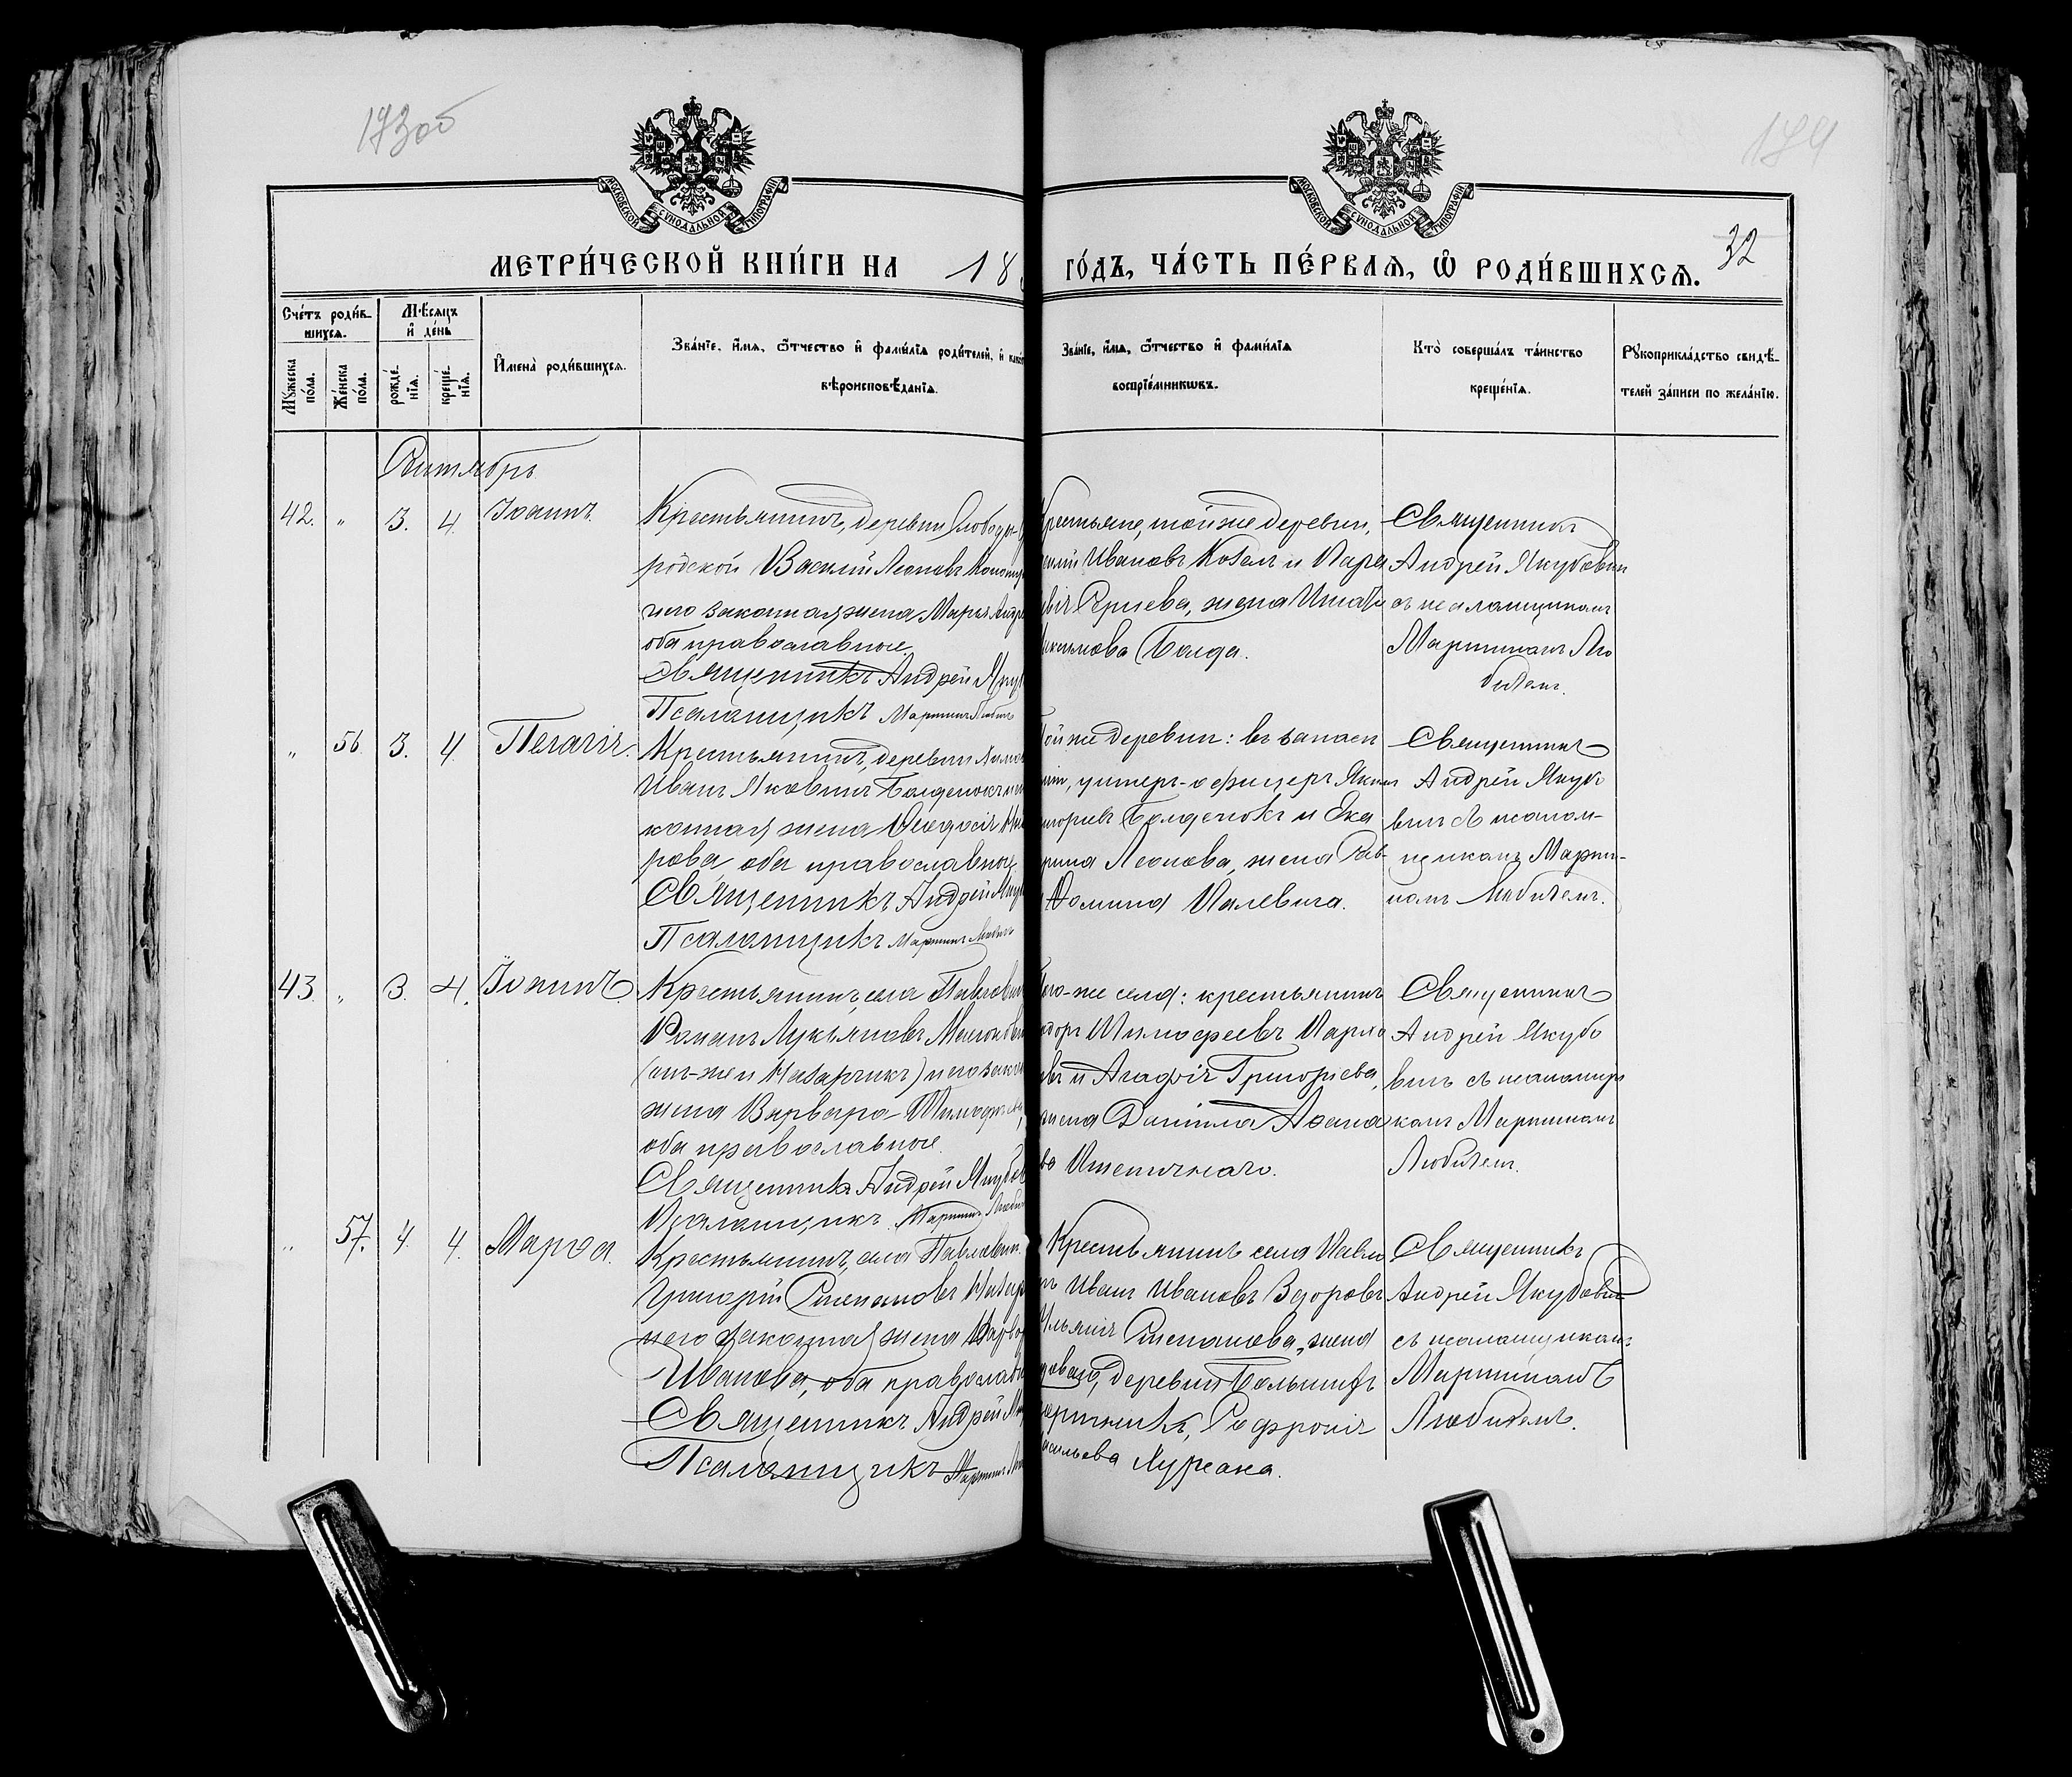 173об
174
МОСКОВСКОЙ СѴНОДАЛЬНОЙ ТИПОГРАФІИ
МОСКОВСКОЙ СѴНОДАЛЬНОЙ ТИПОГРАФІИ
МЕТРИ́ЧЕСКОЙ КНИ́ГИ НА 18
ГО́ДЪ, ЧА́СТЬ ПЕ́РВАѦ, Ѡ РОДИ́ВШИХСѦ.
32
Сче́тъ роди́в-
шихся.
Мѣсяцъ
и де́нь
Мꙋ́жеска
по́ла.
Же́нска
по́ла.
рожде́-
нїѧ.
креще́-
нїѧ.
Имена̀ роди́вшихся.
Зва́нїе, и́мя, о́тчество и фами́лїя роди́телей, и како
вѣроисповѣ́данїя.
Зва́нїе, и́мя, о́тчество и фами́лїя
воспрїе́мниковъ.
Кто̀ соверша́лъ та́инство
креще́нїя.
Рꙋкоприкла́дство свидѣ́-
телей за́писи по жела́нїю.
Октябрь
42. " 3. 4. Іоаннъ.
Крестьянинъ, деревни Слободы-
родской Василій Леоновъ
и его законная жена Марья Андре
оба православные.
Священникъ Андрей Яку
Псаломщикъ Мартинъ Любит
Крестьяне, той же деревни,
силій Ивановъ Козелъ и Пара
Сергіева, жена Игнатія
Максимова Болда.
Священникъ
Андрей Якубович
съ псаломщикомъ
Мартиномъ Лю
бителъ.
" 56. 3. 4. Пелагія.
Крестьянинъ, деревни
Иванъ Яковинъ Болденокъ и
конная жена Ѳеодосія
рова, оба православные
Священникъ Андрей Яку
Псаломщикъ Мартинъ Любит
Той же деревни: въ запасн
унтеръ-офицеръ Яковъ
Григорьевъ Болденокъ и Ека
рина Леонова, жена Сав-
Фомина Палевича.
Священникъ
Андрей Якубо
вичъ съ псалом-
щикомъ Марти-
номъ Любителъ.
43. " 3. 4. Іоаннъ
Крестьянинъ, села Павловичъ
Романъ Лукьяновъ
(онъ-же и Назарчикъ) и его закон
жена Варвара Тимофеева,
оба православные.
Священникъ Андрей Якубов
Псаломщикъ Мартинъ Любит
Того-же села: крестьянинъ
Тимофеевъ
и Агафія Григорьева,
жена Даніила Аѳана
Пшеничнаго.
Священникъ
Андрей Якубо
вичъ съ псаломщи
комъ Мартиномъ
Любителъ.
" 57. 4. 4. Марѳа.
Крестьянинъ, села Павлович
Григорій Степановъ Назар
и его законная жена Варвар
Иванова, оба православн
Священникъ Андрей Яку
Псаломщикъ Мартинъ Лю
Крестьянинъ села Павло
Иванъ Ивановъ
Ульянія Степанова, жена
деревни Большихъ
Софронія
Васильева
Священникъ
Андрей Якубович
съ псаломщиком:
Мартиномъ
Любителъ.